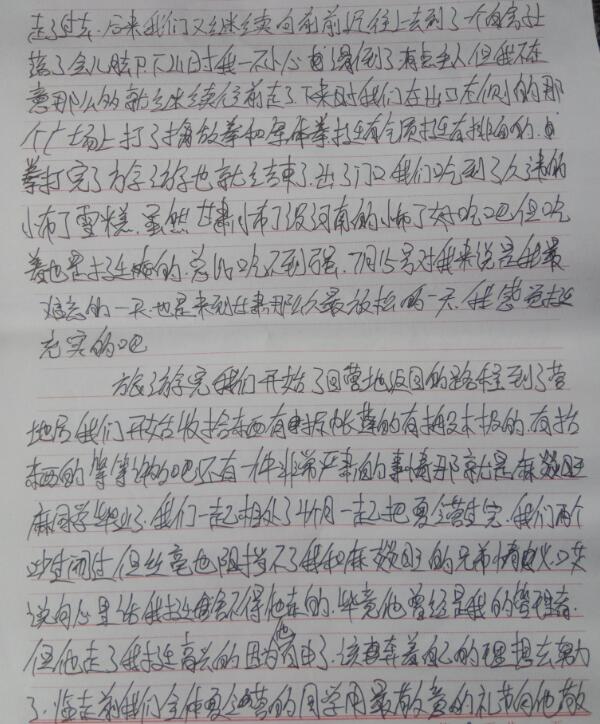 走了过去.后来我们又继续向前前进往上去到了一个
落了会儿脚,下山时我一不小心滑倒了有点丢人但我不在
意那么多就继续往前走了.下来时我们在出口左侧的那
个广场上打了擒敌拳和军体拳挺有气质挺有排面的.
拳打完了旅游也就结束了.出了门口我们吃到了久违的
小布丁雪糕.虽然甘肃小布丁没河南的小布丁好吃吧但吃
着也是挺爽的.总比吃不到强.7月15号对我来说是我最
难忘的一天.也是来到甘肃那么久最放松的一天.我感觉挺
充实的吧
旅游完我们开始了回营地返回的路程到了营
地后我们开始收拾东西有拆帐篷的有搬设木板的.有抬
东西的等等说的吧还有一件非常严肃的事情那就是麻
麻同学毕业了.我们一起相处了4个月一起把夏令营过完.我们两个
但丝毫也阻挡不了我和麻的兄弟情义.只要
说句心里话我挺舍不得他走的.毕竟他曾经是我的管理者.
但他走了我挺高兴的因为他自由了.该奔着自己的理想去努力
了.临走前我们全体夏令营的同学用最敬意的礼节向他敬